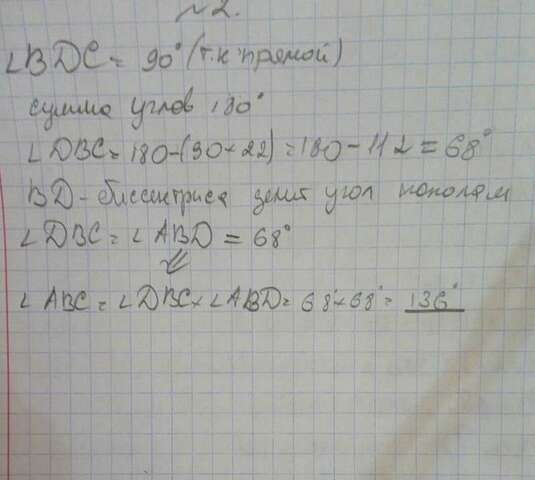 №2.
∠BDC = 90° (т.к прямой)
сумма углов 180°
∠DBC = 180-(90+22) = 180 - 112 = 68°
BD - биссектриса делит угол пополам
∠DBC = ∠ABD = 68°
⇓
∠ABC = ∠DBC + ∠ABD = 68°+68° = 136°